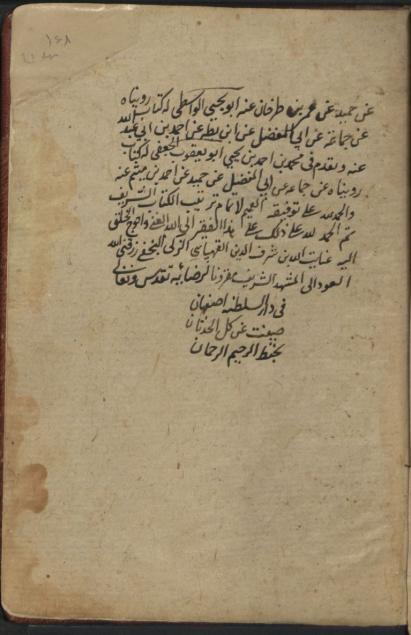 ١٤٨
عن حميد عن عمر بن طرخان عنه ابو يحيى الواسطي له كتاب رويناه
عن جماعة عن ابي المفضل عن ابن بطة عن احمد بن ابي عبد الله
عنه وتقدم في محمد بن احمد بن يحيى ابو يعقوب الجعفي له كتاب
رويناه عن جماعة عن ابي المفضل عن حميد عن احمد بن ميثم عنه
والحمد لله على توفيقه لاتمام ترتيب الكتاب الشريف
ثم الحمد لله على ذلك على هذا الفقير الى الله الغني واحوج الخلق
اليه عناية الله بن شرف الدين القهپائي الزكي النجفي رزقني الله
العود الى المشهد الشريف لرضائه تقدس وتعالى
في دار السلطنه اصفهان
صينت عن كل الحدثان
بحفظ الرحيم الرحمان